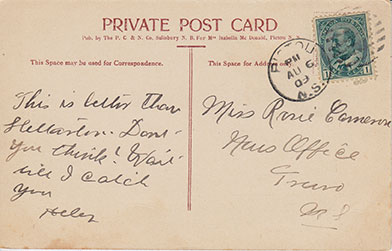 PRIVATE POST CARD
Pub. by The P. C. & N. Co. Salisbury N. B. For Mrs Isabella Mc Donald, Pictou N. S.
This Space may be used for Correspondence.
This Space for Address
PICTOU
PM
AU 6
09
N.S.
This is better than
Stellarton. Don't
you think? Wait
till I catch
you
Helen
Miss Rosie Cameron
News Office
Truro
N S